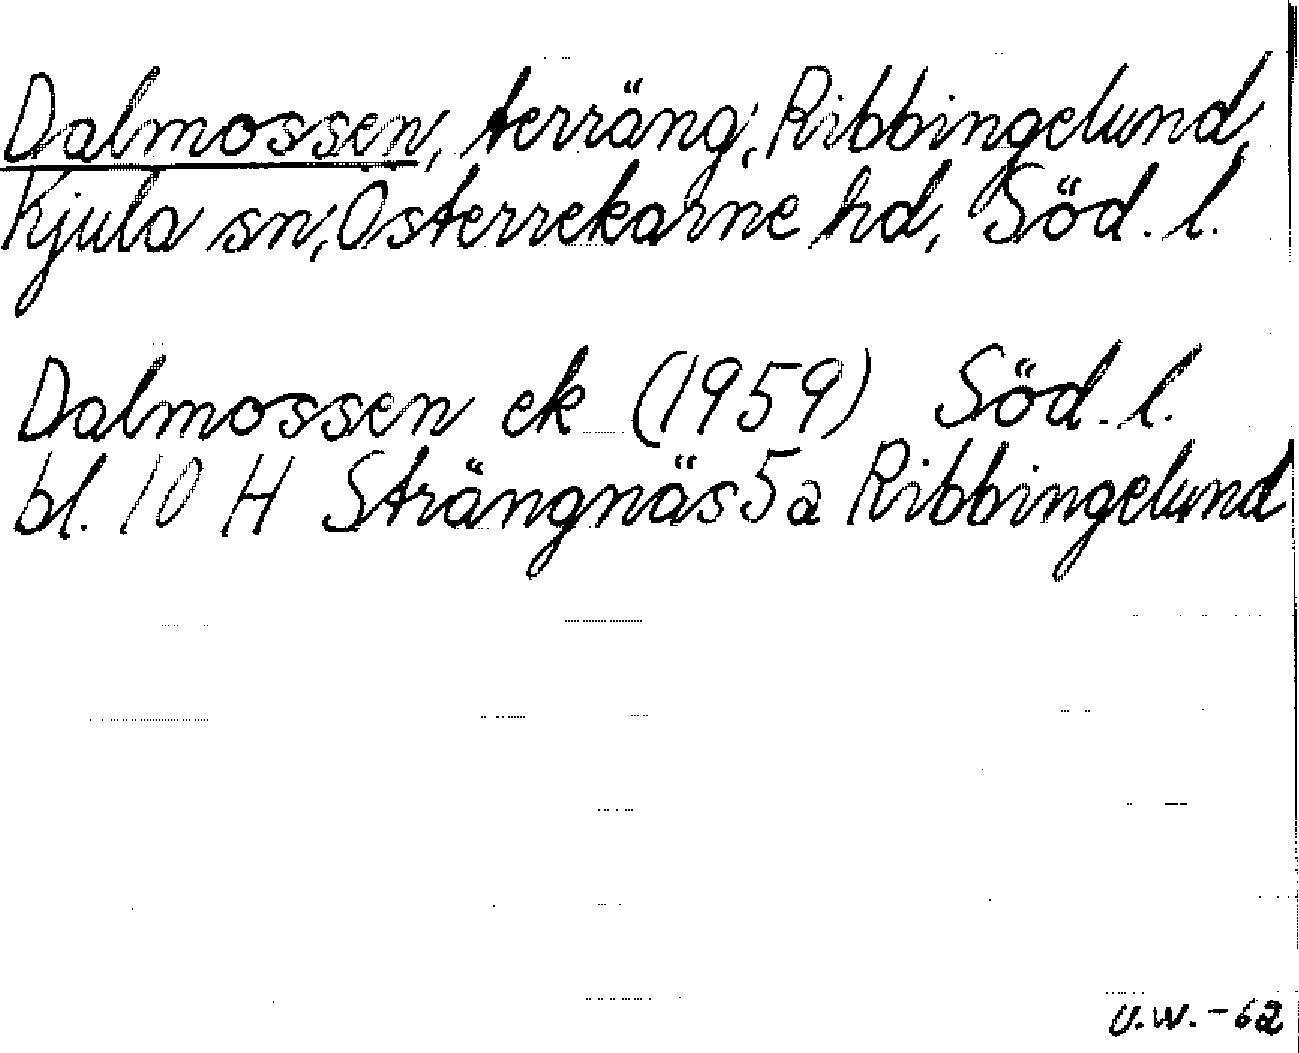 Dalmossen, terräng, Ribbingelund,
Kjula sn, Österrekarne hd, Söd. l.
Dalmossen ek (1959) Söd. l.
bl. 10 H Strängnäs 5a Ribbingelund
U.W. - 62